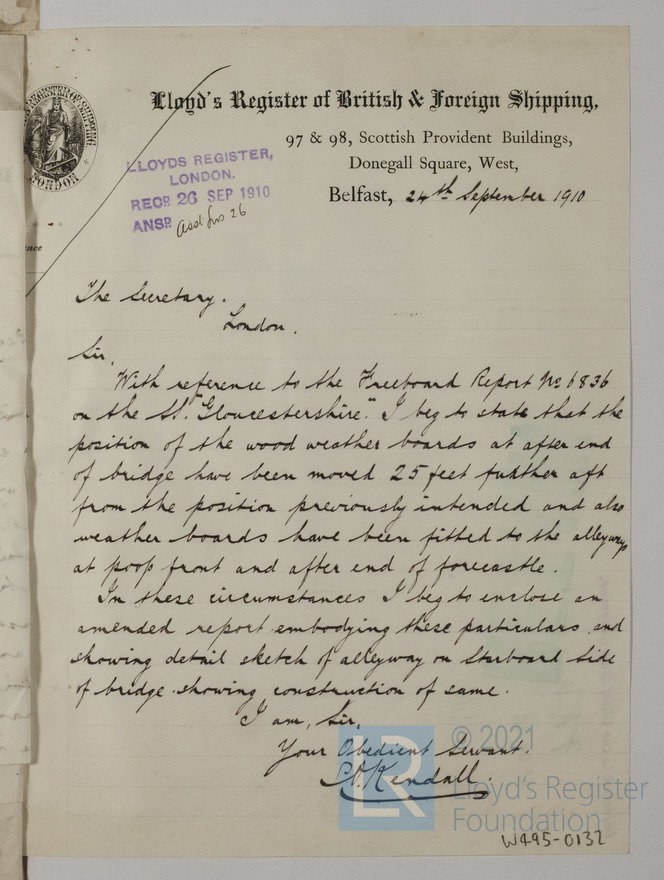 Lloyd's Register of British & Foreign Shipping,
97 & 98, Scottish Provident Buildings,
Donegall Square, West,
Belfast, 24th September 1910
LLOYDS REGISTER,
LONDON.
RECD 26 SEP 1910
ANSD
LONDON
The Secretary.
London.
Sir,
With reference to the Freeboard Report No 6836
on the SS. "Gloucestershire". I beg to state that the
position of the wood weather boards at after end
of bridge have been moved 25 feet further aft
from the position previously intended and also
weather boards have been fitted to the alleyways
at poop front and after end of forecastle.
In these circumstances I beg to enclose an
amended report embodying these particulars and
showing detail sketch of alleyway on Starboard side
of bridge showing construction of same.
I am, Sir,
Your Obedient Servant.
Kendall.
LR
© 2021
Lloyd's Register
Foundation
W495-0132